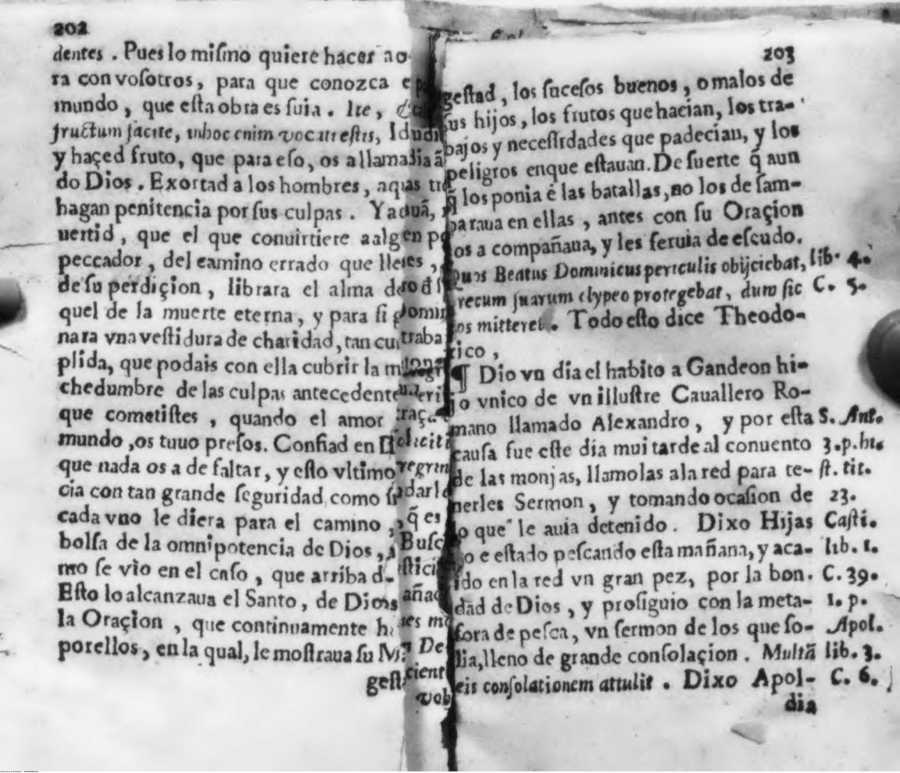 202
dentes . Pues lo miſmo quiere hacer ao-
ra con voſotros, para que conozca e
mundo, que eſta obra es ſuia. Ite,
fructum facite, inhoc enim vocati estis, I d
y haçed fruto, que para eſo, os a llama
do Dios. Exortad a los hombres, aq
hagan penitencia por ſus culpas. Y ad
uertid, que el que conuirtiere aalg
peccador, del camino errado que lle
de ſu perdiçion, librara el alma de
quel de la muerte eterna, y para ſi
nara vna veſtidura de charidad, tan cu
plida, que podais con ella cubrir la m
chedumbre de las culpas antecedente
que cometiſtes, quando el amor
mundo, os tuuo preſos. Confiad en
que nada os a de faltar, y eſto vltimo
cia con tan grande ſeguridad, como ſi
cada vno le diera para el camino,
bolſa de la omnipotencia de Dios,
mo ſe vio en el caſo, que arriba d
Eſto lo alcanzaua el Santo, de Dios
la Oraçion, que continuamente h
porellos, en la qual, le moſtraua ſu M
geſt
203
geſtad, los ſuceſos buenos, o malos de
ſus hijos, los frutos que hacian, los tra-
bajos y neceſsidades que padecian, y los
peligros enque eſtauan. De ſuerte q̃ aun
q̃ los ponia ẽ las batallas, no los de ſam-
paraua en ellas, antes con ſu Oraçion
os a compañaua, y les ſeruia de eſcudo.
Quos Beatus Dominicus periculis obijciebat,
precum ſuarum clypeo protegebat, dum ſic
os mitteret. Todo eſto dice Theodo-
rico,
¶ Dio vn dia el habito a Gandeon hi-
jo vnico de vn illuſtre Cauallero Ro-
mano llamado Alexandro, y por eſta
cauſa fue eſte dia mui tarde al conuento
de las monjas, llamolas ala red para te-
nerles Sermon, y tomando ocaſion de
lo que le auia detenido. Dixo Hijas
yo e eſtado peſcando eſta mañana, y aca-
ido en la red vn gran pez, por la bon-
dad de Dios, y proſiguio con la meta-
fora de peſca, vn ſermon de los que ſo-
lia, lleno de grande conſolaçion. Multã
eis conſolationem attulit. Dixo Apol-
dia
lib. 4.
C. 5.
S. Ant.
3. p. hi.
ſt. tit.
23.
Caſti.
lib. 1.
C. 39.
1. p.
Apol.
lib. 3.
C. 6.